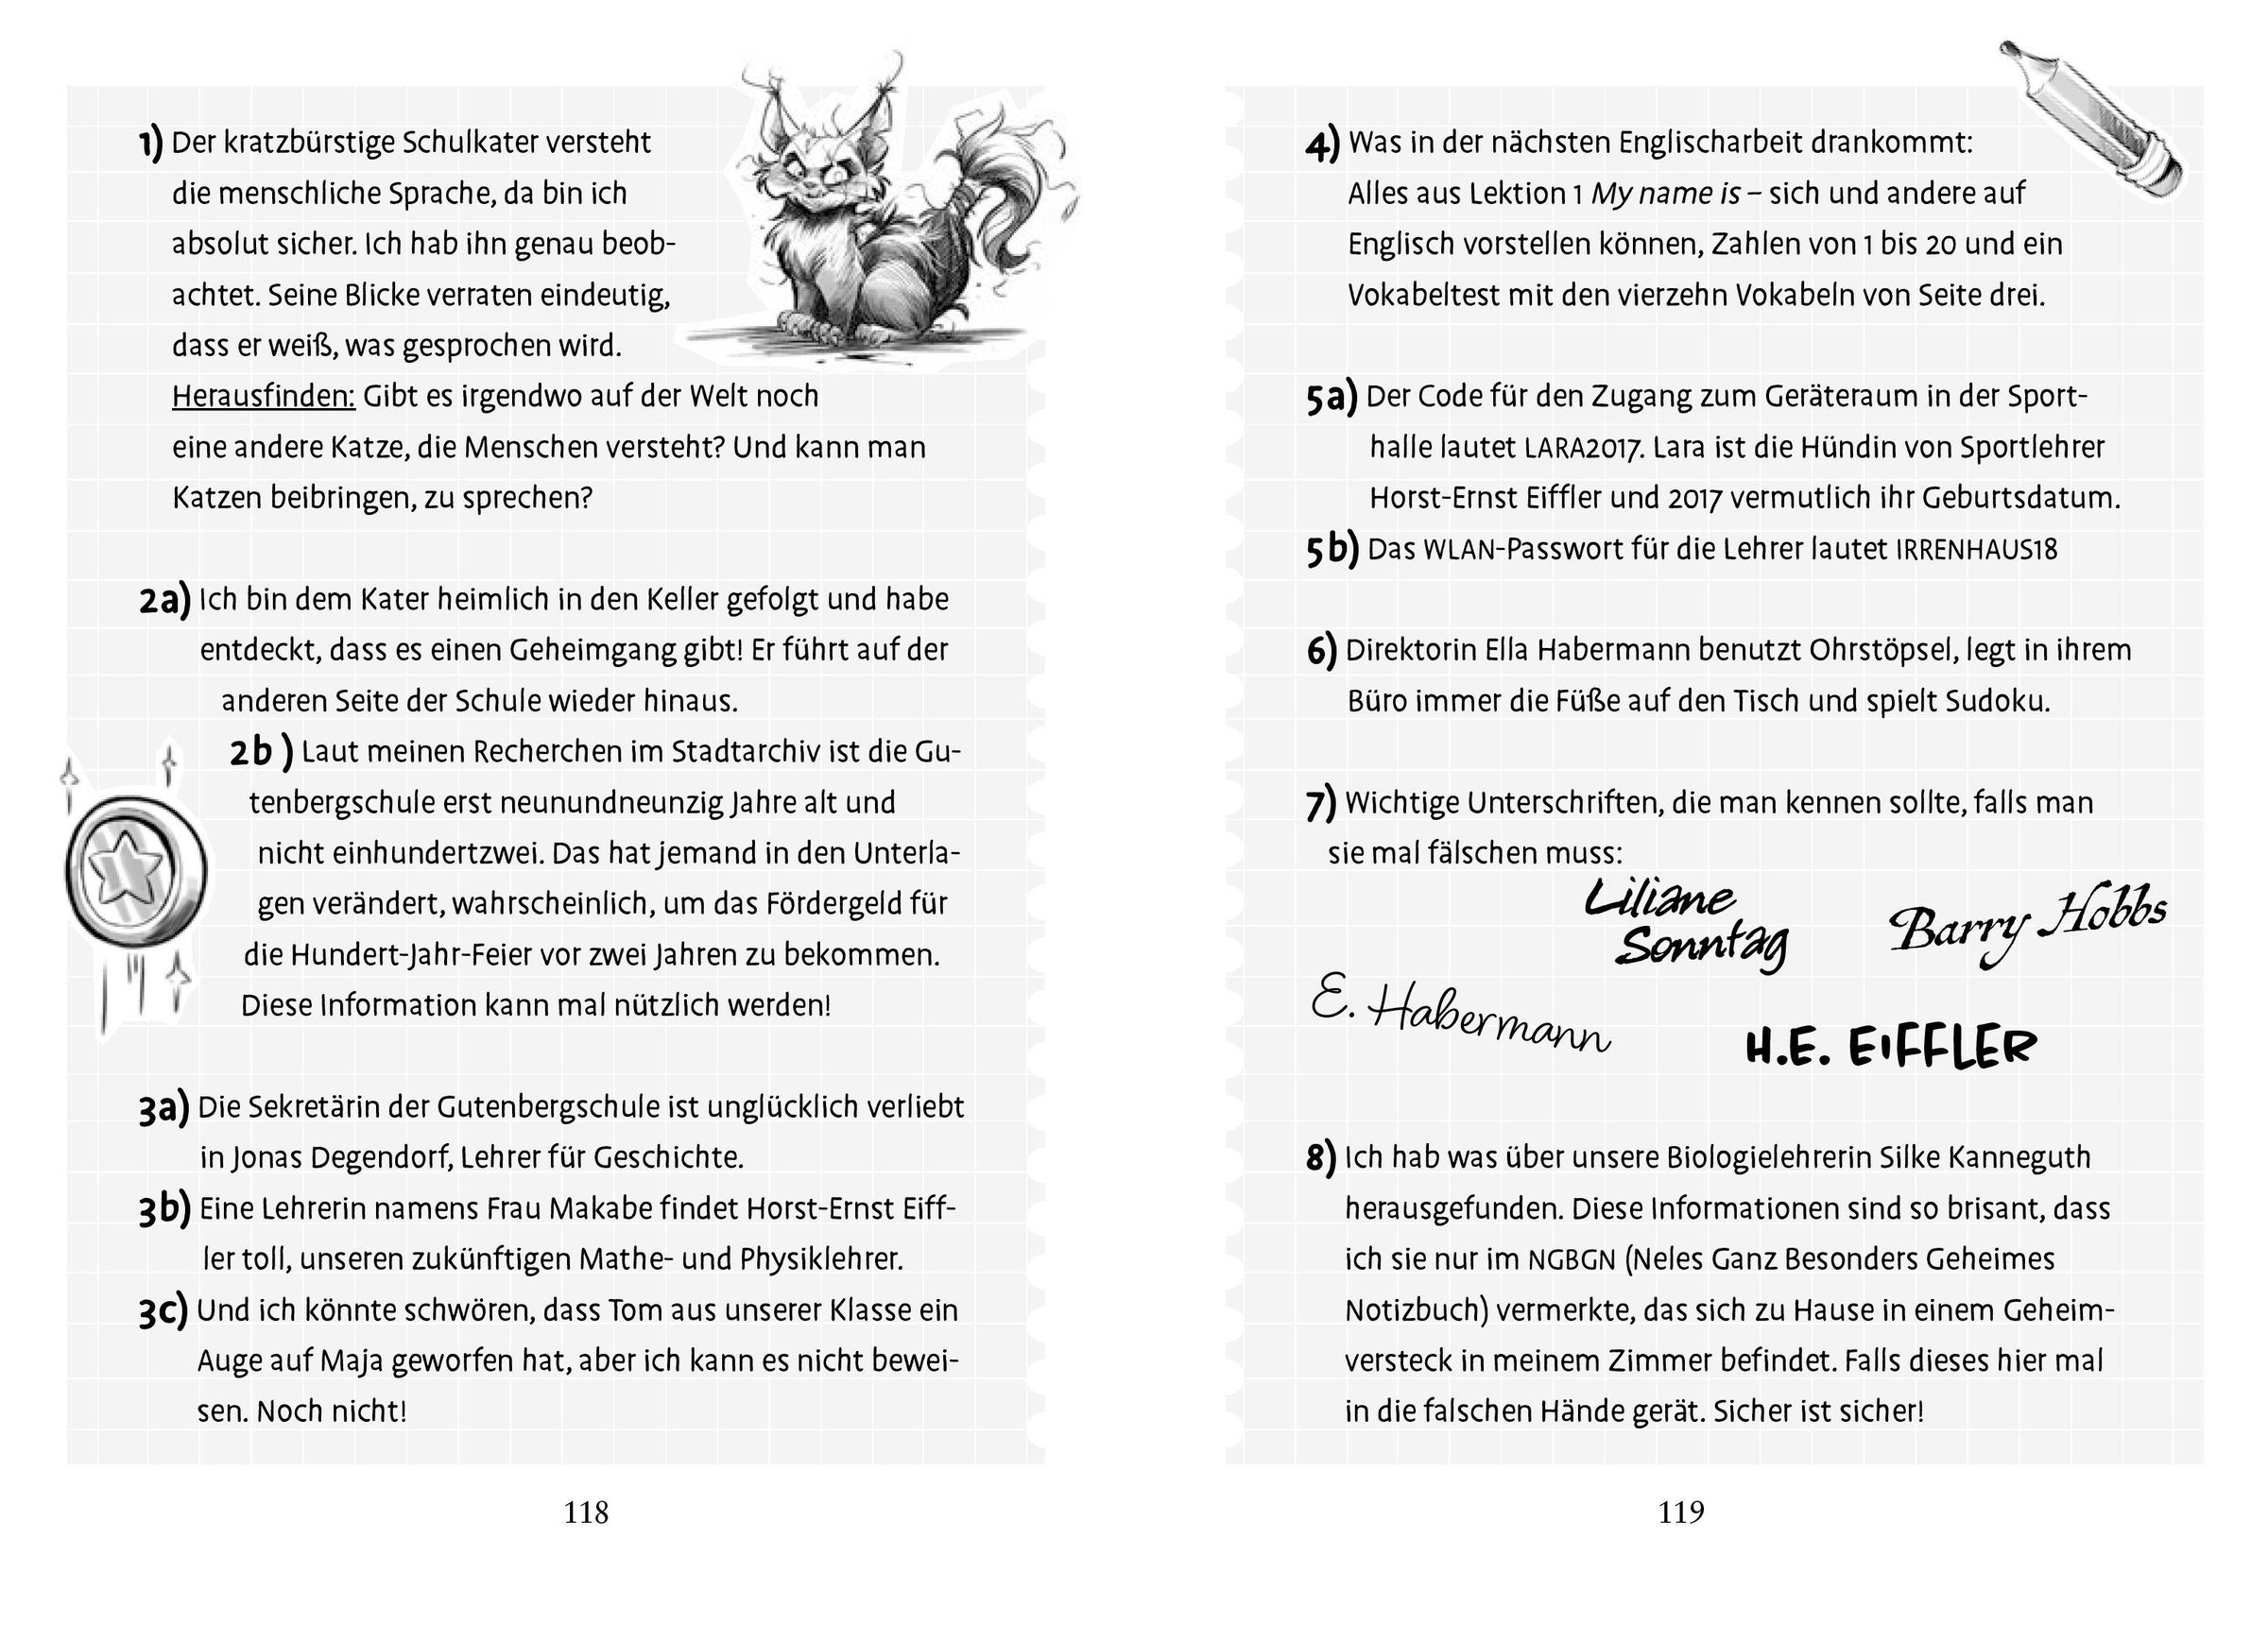 1) Der kratzbürstige Schulkater versteht
die menschliche Sprache, da bin ich
absolut sicher. Ich hab ihn genau beob-
achtet. Seine Blicke verraten eindeutig,
dass er weiß, was gesprochen wird.
Herausfinden: Gibt es irgendwo auf der Welt noch
eine andere Katze, die Menschen versteht? Und kann man
Katzen beibringen, zu sprechen?
2a) Ich bin dem Kater heimlich in den Keller gefolgt und habe
entdeckt, dass es einen Geheimgang gibt! Er führt auf der
anderen Seite der Schule wieder hinaus.
2b ) Laut meinen Recherchen im Stadtarchiv ist die Gu-
tenbergschule erst neunundneunzig Jahre alt und
nicht einhundertzwei. Das hat jemand in den Unterla-
gen verändert, wahrscheinlich, um das Fördergeld für
die Hundert-Jahr-Feier vor zwei Jahren zu bekommen.
Diese Information kann mal nützlich werden!
3a) Die Sekretärin der Gutenbergschule ist unglücklich verliebt
in Jonas Degendorf, Lehrer für Geschichte.
3b) Eine Lehrerin namens Frau Makabe findet Horst-Ernst Eiff-
ler toll, unseren zukünftigen Mathe- und Physiklehrer.
3c) Und ich könnte schwören, dass Tom aus unserer Klasse ein
Auge auf Maja geworfen hat, aber ich kann es nicht bewei-
sen. Noch nicht!
118
4) Was in der nächsten Englischarbeit drankommt:
Alles aus Lektion 1 My name is – sich und andere auf
Englisch vorstellen können, Zahlen von 1 bis 20 und ein
Vokabeltest mit den vierzehn Vokabeln von Seite drei.
5a) Der Code für den Zugang zum Geräteraum in der Sport-
halle lautet LARA2017. Lara ist die Hündin von Sportlehrer
Horst-Ernst Eiffler und 2017 vermutlich ihr Geburtsdatum.
5b) Das WLAN-Passwort für die Lehrer lautet IRRENHAUS18
6) Direktorin Ella Habermann benutzt Ohrstöpsel, legt in ihrem
Büro immer die Füße auf den Tisch und spielt Sudoku.
7) Wichtige Unterschriften, die man kennen sollte, falls man
sie mal fälschen muss:
Liliane
Sonntag
Barry Hobbs
E. Habermann
H.E. EIFFLER
8) Ich hab was über unsere Biologielehrerin Silke Kanneguth
herausgefunden. Diese Informationen sind so brisant, dass
ich sie nur im NGBGN (Neles Ganz Besonders Geheimes
Notizbuch) vermerkte, das sich zu Hause in einem Geheim-
versteck in meinem Zimmer befindet. Falls dieses hier mal
in die falschen Hände gerät. Sicher ist sicher!
119